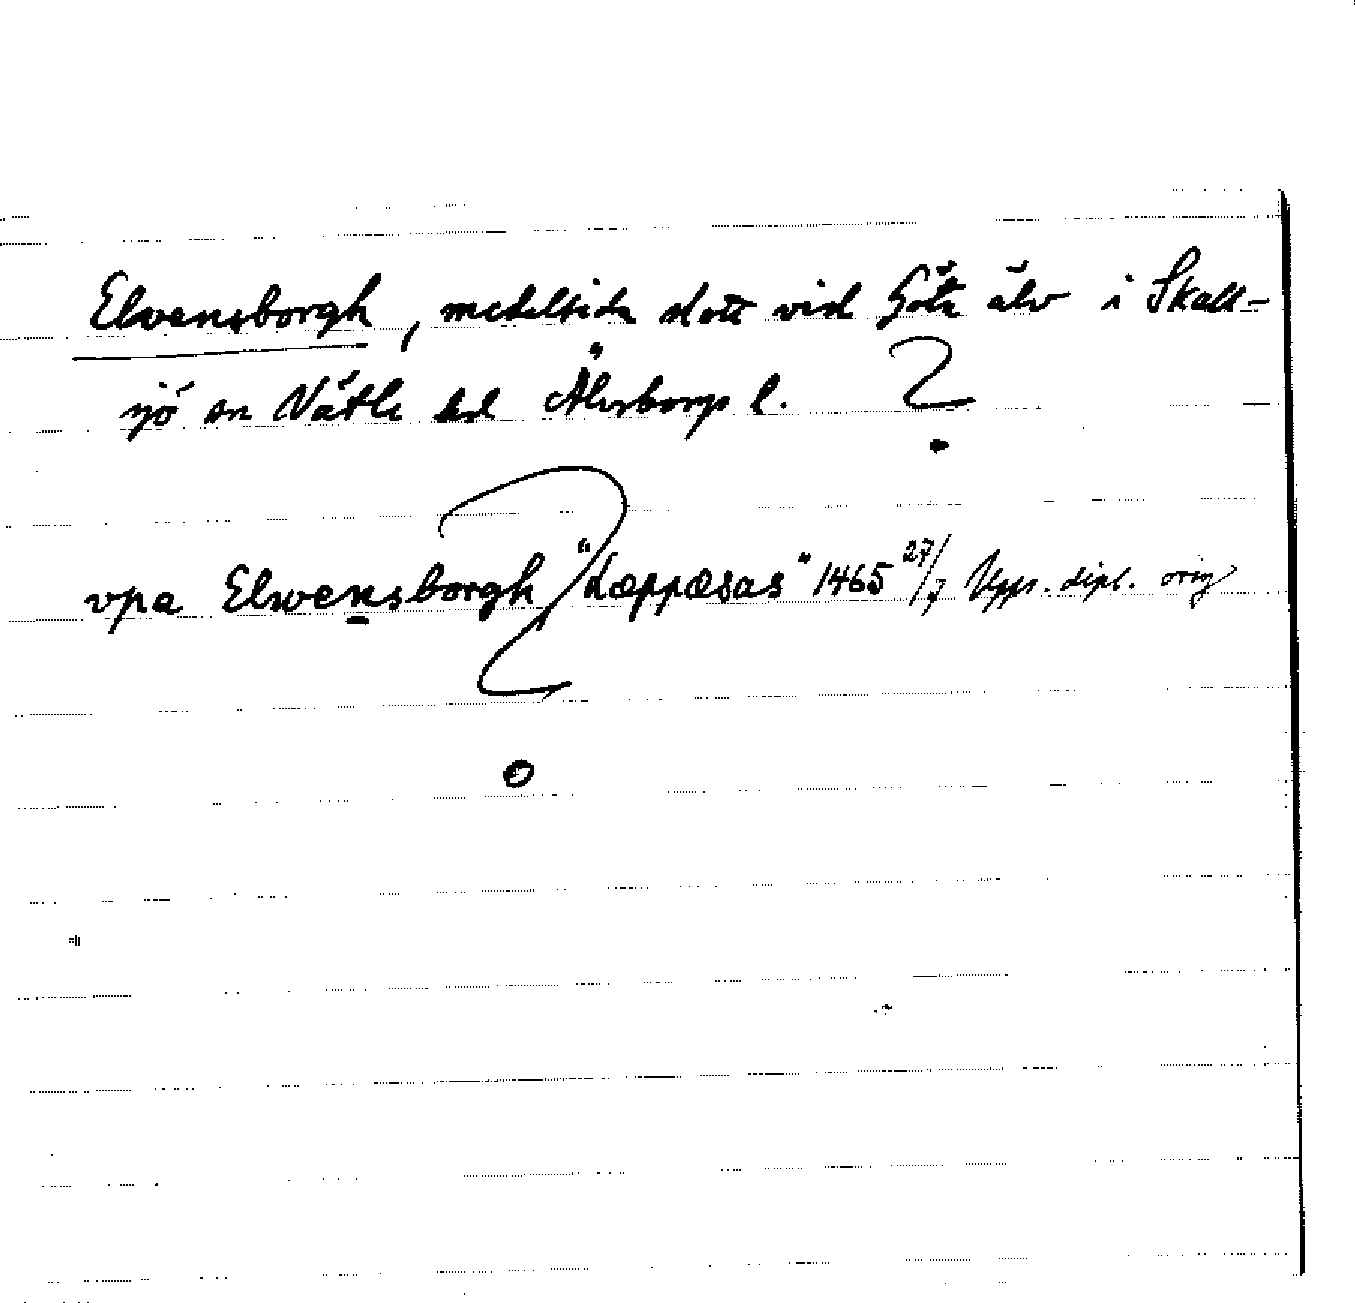 Elwensborgh, medeltida slott vid Göta älv i Skall-
sjö sn Vättle hd Älvsborgs l. ?
vpa Elwensborgh "Læppæsas" 1465 27/7 Upps. dipl. orig
?